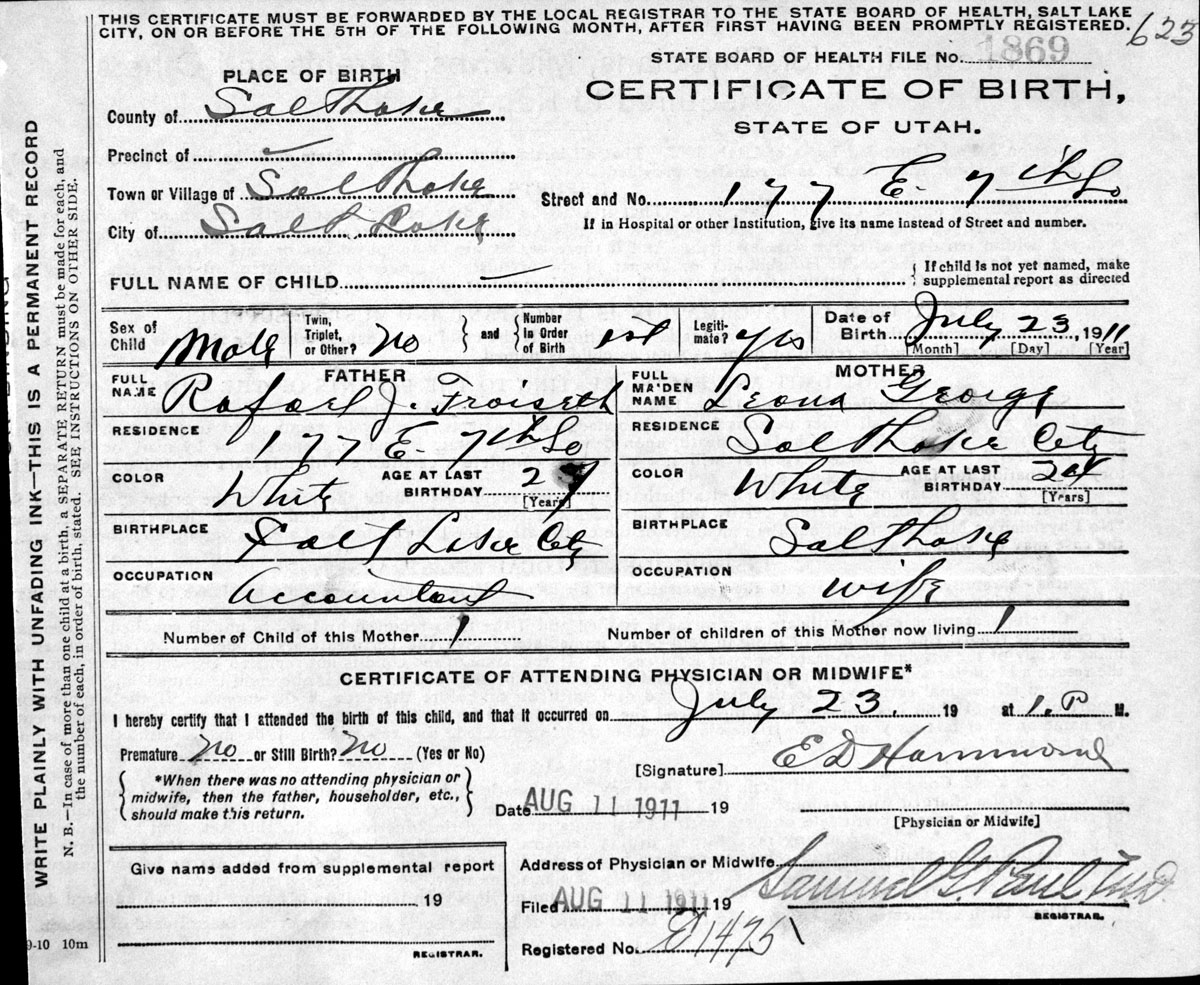 THIS CERTIFICATE MUST BE FORWARDED BY THE LOCAL REGISTRAR TO THE STATE BOARD OF HEALTH, SALT LAKE
CITY, ON OR BEFORE THE 5TH OF THE FOLLOWING MONTH, AFTER FIRST HAVING BEEN PROMPTLY REGISTERED.
623
STATE BOARD OF HEALTH FILE No. 1869
CERTIFICATE OF BIRTH,
STATE OF UTAH.
PLACE OF BIRTH
County of Salt Lake
Precinct of
Town or Village of Salt Lake
City of Salt Lake
Street and No. 177 E. 7th So
If in Hospital or other Institution, give its name instead of Street and number.
FULL NAME OF CHILD
If child is not yet named, make
supplemental report as directed
Sex of Child Male
Twin, Triplet, or Other? No
and
Number in Order of Birth 1st
Legiti-mate? yes
Date of Birth July 23, 1911
[Month] [Day] [Year]
FATHER
FULL NAME Rafael J. Froiseth
RESIDENCE 177 E. 7th So
COLOR White AGE AT LAST BIRTHDAY 27
[Years]
BIRTHPLACE Salt Lake City
OCCUPATION Accountant
MOTHER
FULL MAIDEN NAME Leona George
RESIDENCE Salt Lake City
COLOR White AGE AT LAST BIRTHDAY 24
[Years]
BIRTHPLACE Salt Lake
OCCUPATION Wife
Number of Child of this Mother 1
Number of children of this Mother now living 1
CERTIFICATE OF ATTENDING PHYSICIAN OR MIDWIFE*
I hereby certify that I attended the birth of this child, and that it occurred on July 23. 19 at 1. P M.
Premature No or Still Birth? No (Yes or No)
*When there was no attending physician or
midwife, then the father, householder, etc.,
should make this return.
[Signature] E D Hammond
Date AUG 11 1911 19
[Physician or Midwife]
Give name added from supplemental report
19
REGISTRAR.
Address of Physician or Midwife
Filed AUG 11 1911 19 Samuel G. Paul M.D.
REGISTRAR.
Registered No. 1475
9-10 10m
WRITE PLAINLY WITH UNFADING INK—THIS IS A PERMANENT RECORD
N. B.—In case of more than one child at a birth, a SEPARATE RETURN must be made for each, and
the number of each, in order of birth, stated. SEE INSTRUCTIONS ON OTHER SIDE.